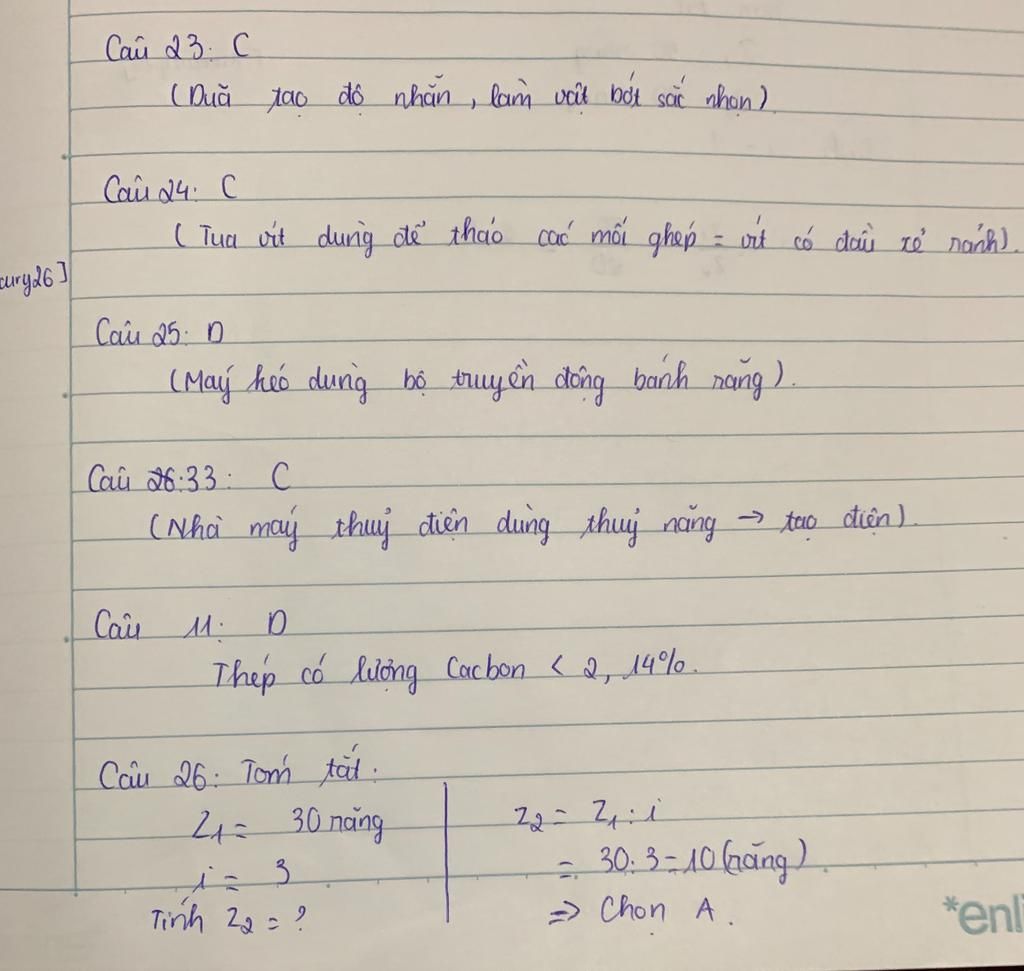 Câu 23: C
(Duã tạo độ nhẵn, làm vật bớt sắc nhọn)
Câu 24: C
(Tua vít dùng để tháo các mối ghép = vít có đầu xẻ rãnh).
cury26]
Câu 25: D
(Máy kéo dùng bộ truyền động bánh răng).
Câu 26:33: C
(Nhà máy thuỷ điện dùng thuỷ năng → tạo điện).
Câu 11: D
Thép có lượng Cacbon < 2,14%.
Câu 26: Tóm tắt:
Z1 = 30 răng
i = 3
Tính Z2 = ?
Z2 = Z1 : i
= 30:3=10 (răng)
=> Chọn A.
*enli